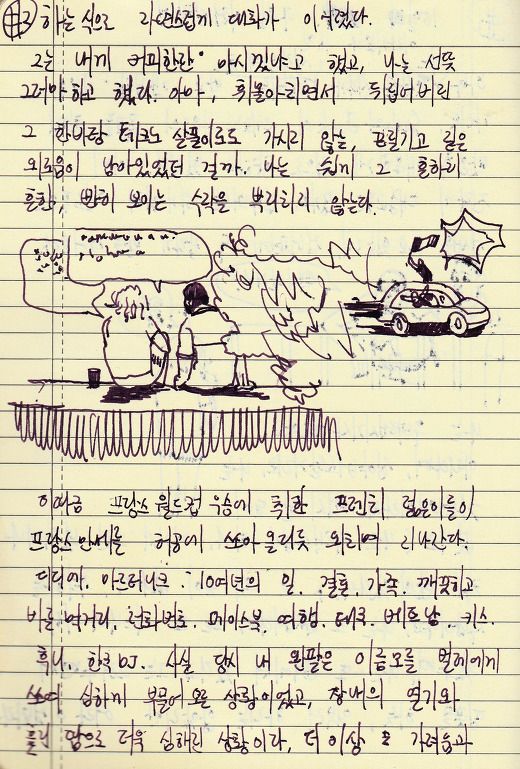 #2 하는 식으로 자연스럽게 대화가 이어졌다.
그는 내게 커피한잔 마시겠냐고 했고, 나는 선뜻
그러마 하고 했다. 아마, 휘몰아치면서 뒤덮어버린
그 한바탕 테크노 살풀이로도 가시지 않는, 끈질기고 깊은
외로움이 남아있었던 걸까. 나는 쉽게 그
흔한, 뻔히 보이는 수작을 뿌리치지 않는다.
이따금 프랑스 월드컵 우승에 취한 프렌치 젊은이들이
프랑스 만세를 허공에 쏘아올리듯 외치며 지나간다.
디디에. 마르티니크. 10여년의 일. 결혼. 가족. 깨끗하고
바른 먹거리. 전화번호. 페이스북. 여행. 테크노. 베트남. 키스.
혹시. 한국DJ. 사실 당시 내 왼팔은 이름모를 벌레에게
쏘여 심하게 부풀어오른 상황이었고, 장내의 열기와
흘린 땀으로 더욱 심해진 상황이라, 더 이상 가려움과